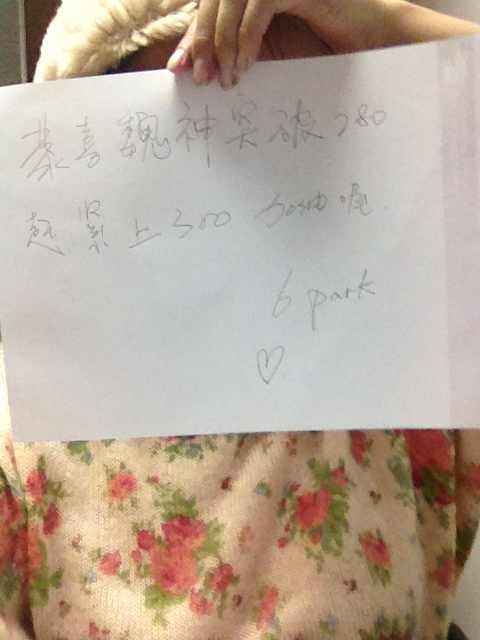 恭喜魏神突破280
赶紧上300 加油喔
6 park
♡